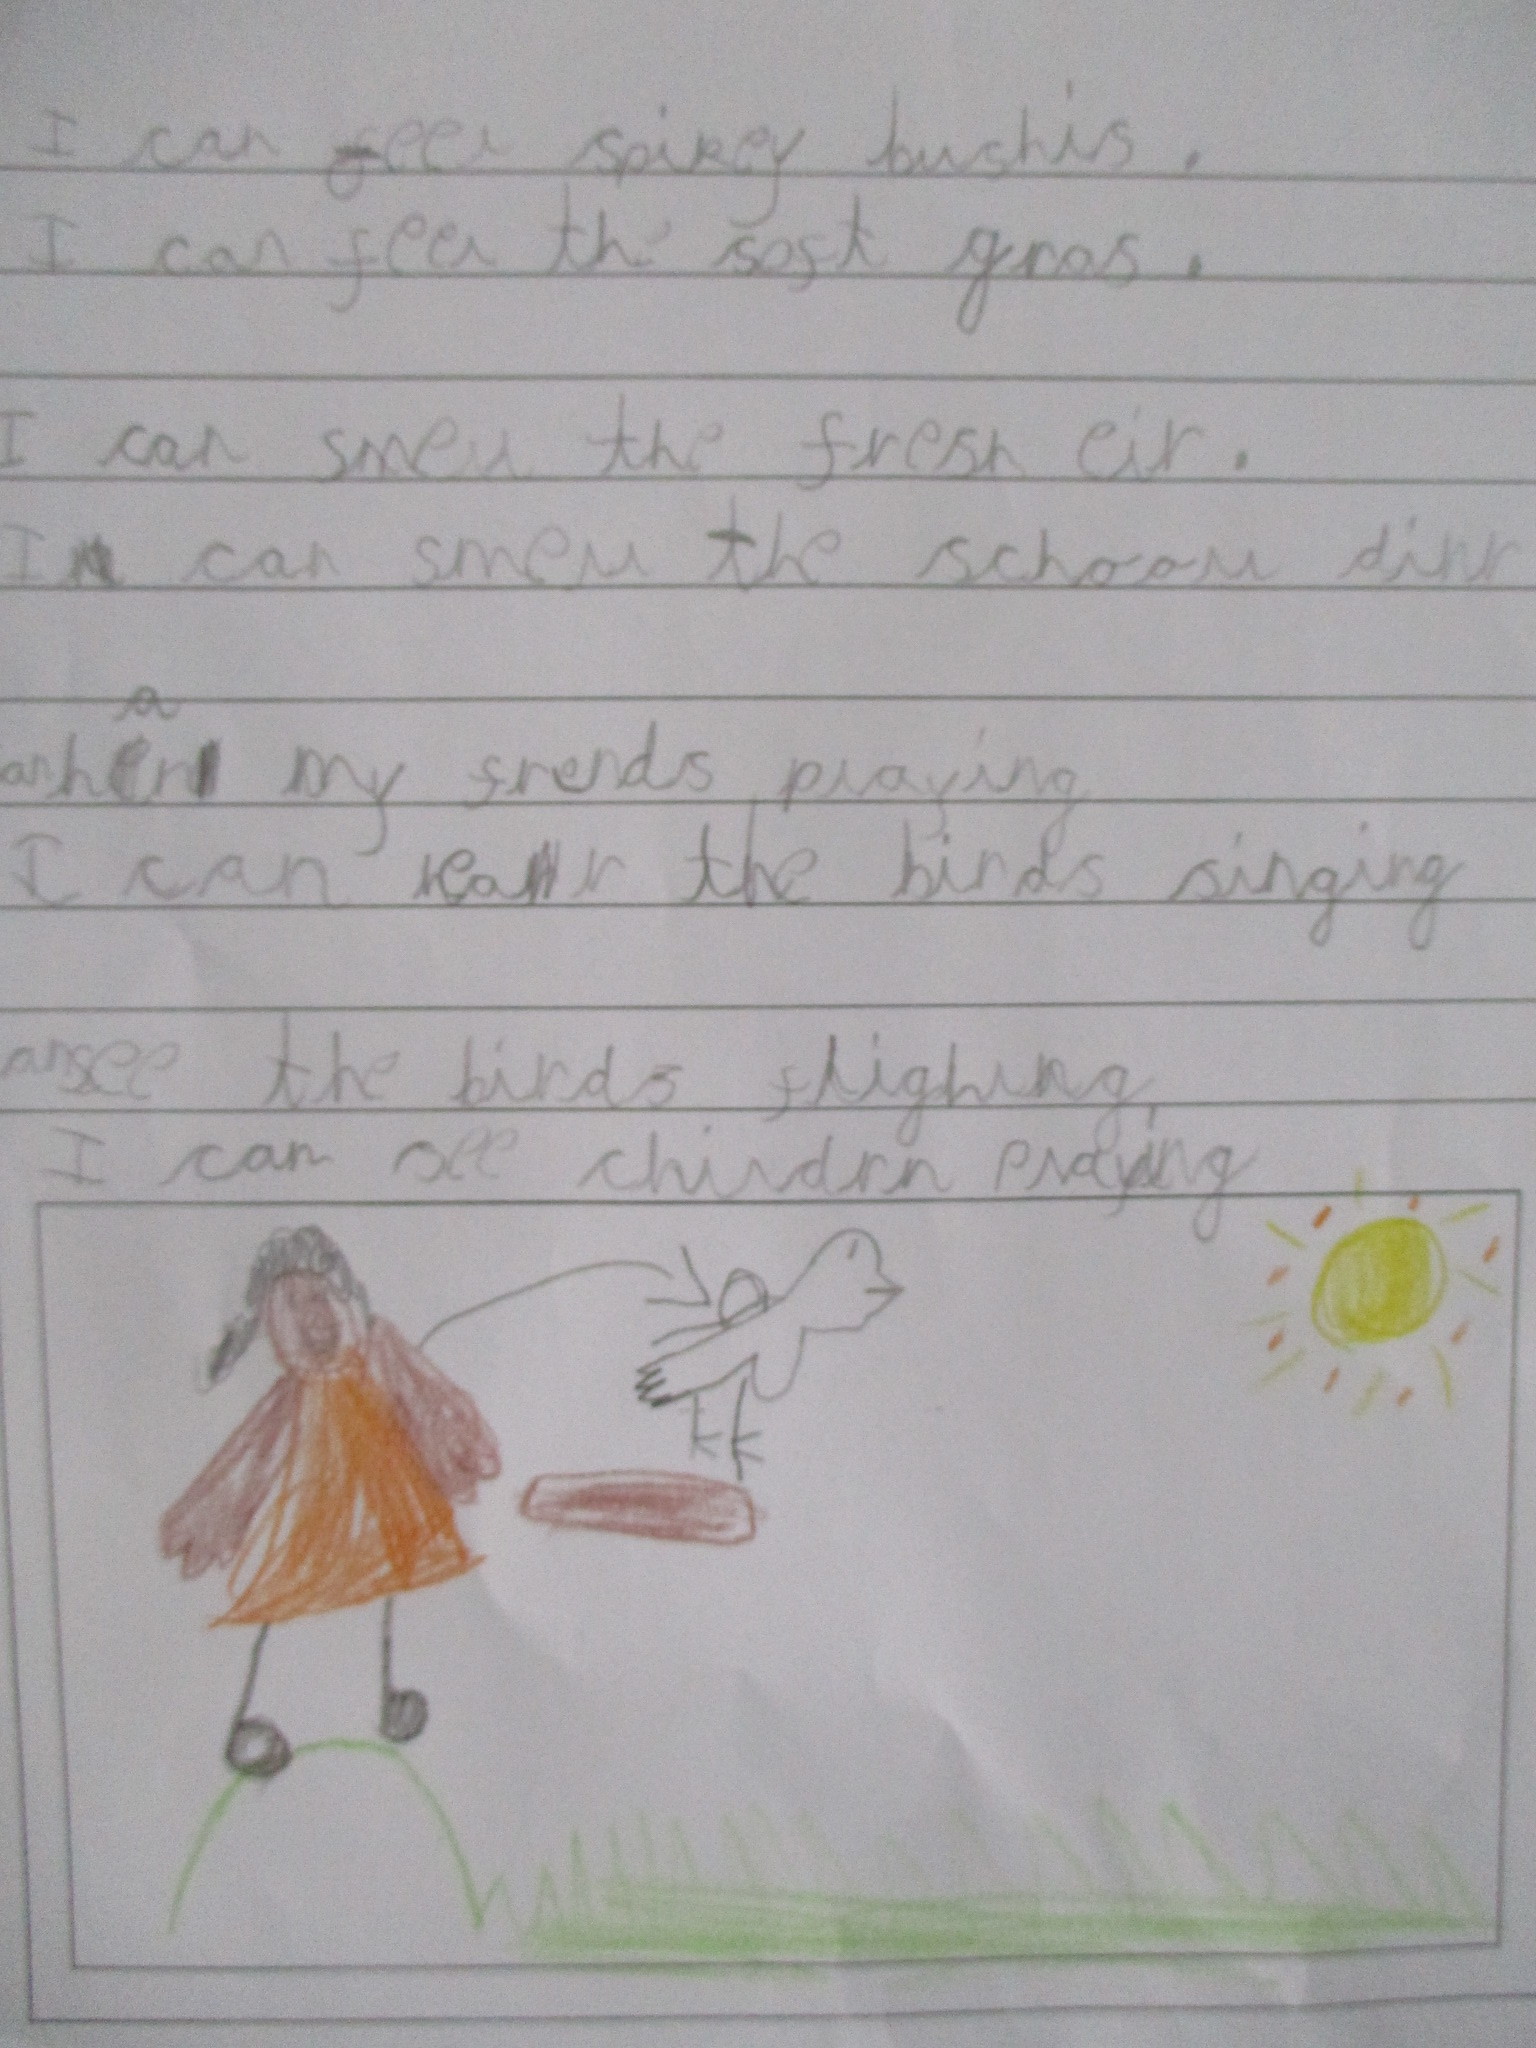 I can feel spikey bushis.
I can feel the soft gras.
I can smell the fresh eir.
I can smell the school dinr
an her my frends playing
I can hear the birds singing
an see the birds flighing
I can see childrn playing